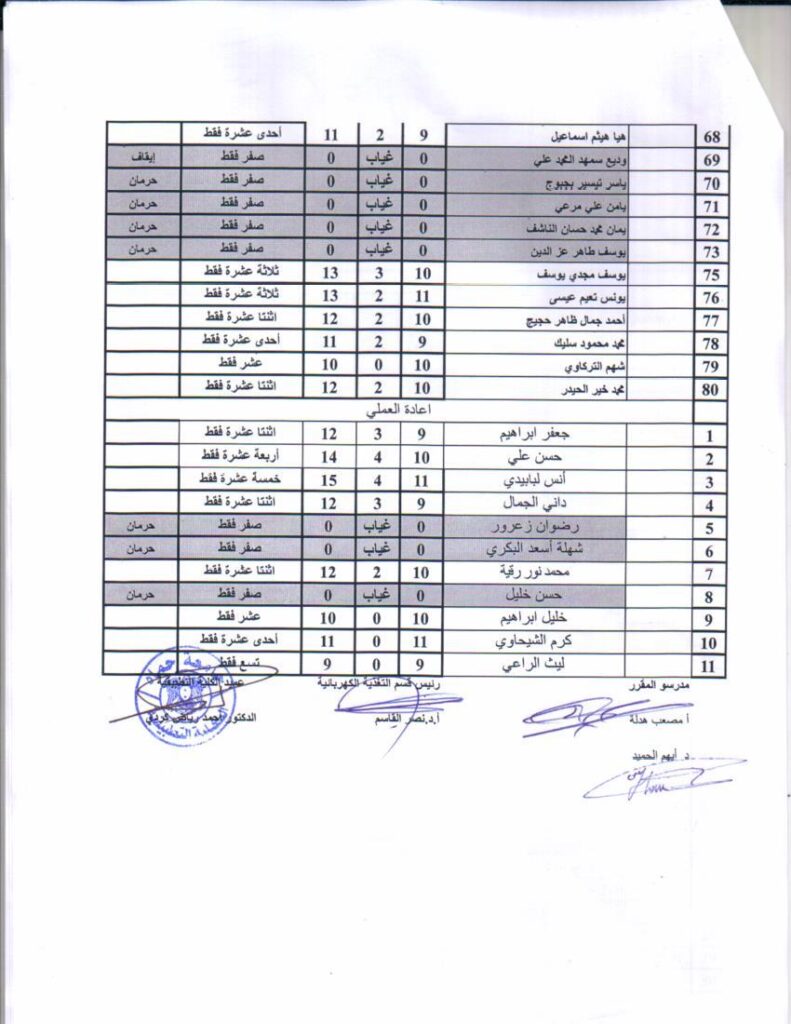 68 هيا هيثم اسماعيل 9 2 11 أحدى عشرة فقط
69 وديع سمهد المحمد علي 0 غياب 0 صفر فقط إيقاف
70 ياسر تيسير بجبوج 0 غياب 0 صفر فقط حرمان
71 يامن علي مرعي 0 غياب 0 صفر فقط حرمان
72 يمان محمد حسان الناشف 0 غياب 0 صفر فقط حرمان
73 يوسف طاهر عز الدين 0 غياب 0 صفر فقط حرمان
75 يوسف مجدي يوسف 10 3 13 ثلاثة عشرة فقط
76 يونس نعيم عيسى 11 2 13 ثلاثة عشرة فقط
77 أحمد جمال ظاهر حجيج 10 2 12 اثنتا عشرة فقط
78 محمد محمود سليك 9 2 11 أحدى عشرة فقط
79 شهم التركاوي 10 0 10 عشر فقط
80 محمد خير الحيدر 10 2 12 اثنتا عشرة فقط
اعادة العملي
1 جعفر ابراهيم 9 3 12 اثنتا عشرة فقط
2 حسن علي 10 4 14 أربعة عشرة فقط
3 أنس لبابيدي 11 4 15 خمسة عشرة فقط
4 داني الجمال 9 3 12 اثنتا عشرة فقط
5 رضوان زعرور 0 غياب 0 صفر فقط حرمان
6 شهلة أسعد البكري 0 غياب 0 صفر فقط حرمان
7 محمد نور رقية 10 2 12 اثنتا عشرة فقط
8 حسن خليل 0 غياب 0 صفر فقط حرمان
9 خليل ابراهيم 10 0 10 عشر فقط
10 كرم الشيحاوي 11 0 11 أحدى عشرة فقط
11 ليث الراعي 9 0 9 تسع فقط
مدرسو المقرر رئيس قسم التغذية الكهربائية عميد الكلية التطبيقية
أ مصعب هدلة أ.د.نصر القاسم الدكتور أحمد رياض كردي
د. أيهم الحميد